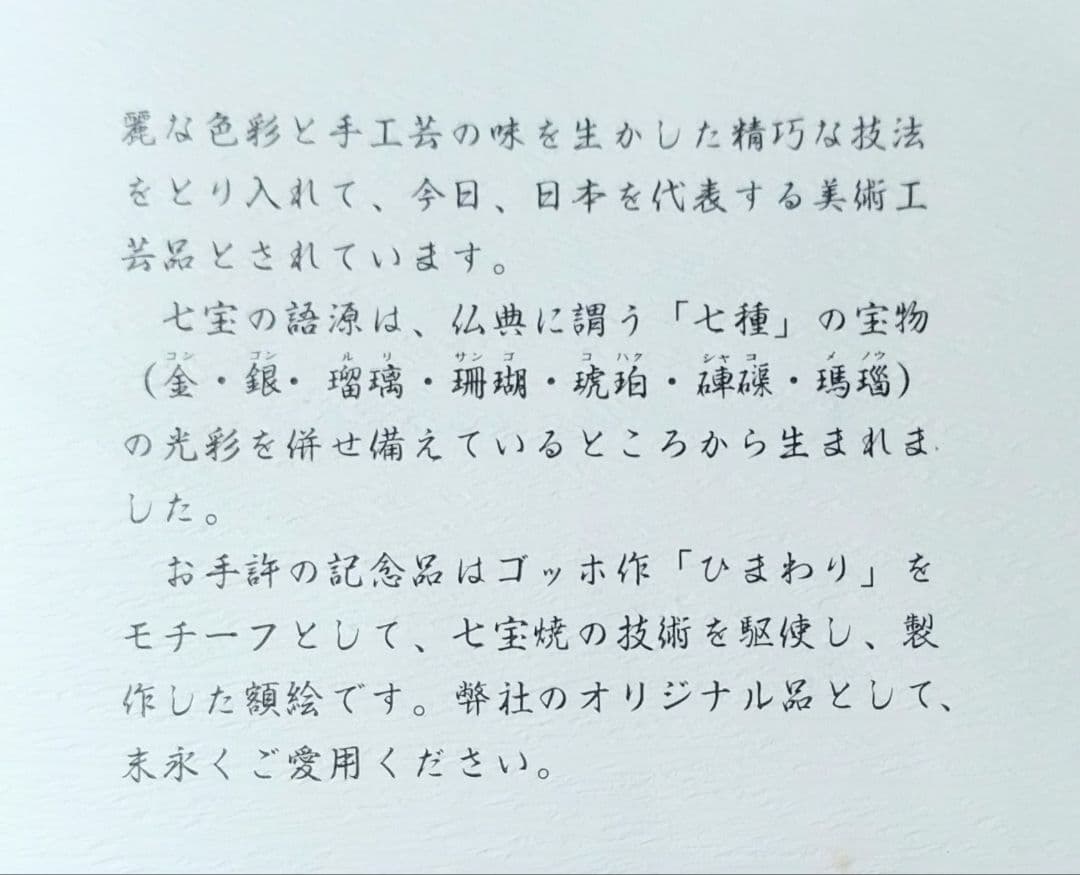 麗な色彩と手工芸の味を生かした精巧な技法
をとり入れて、今日、日本を代表する美術工
芸品とされています。
七宝の語源は、仏典に謂う「七種」の宝物
コン ゴン ル リ サン ゴ コ ハク シヤ コ メ ノウ
（金・銀・瑠璃・珊瑚・琥珀・硨磲・瑪瑙）
の光彩を併せ備えているところから生まれま
した。
お手許の記念品はゴッホ作「ひまわり」を
モチーフとして、七宝焼の技術を駆使し、製
作した額絵です。弊社のオリジナル品として、
末永くご愛用ください。